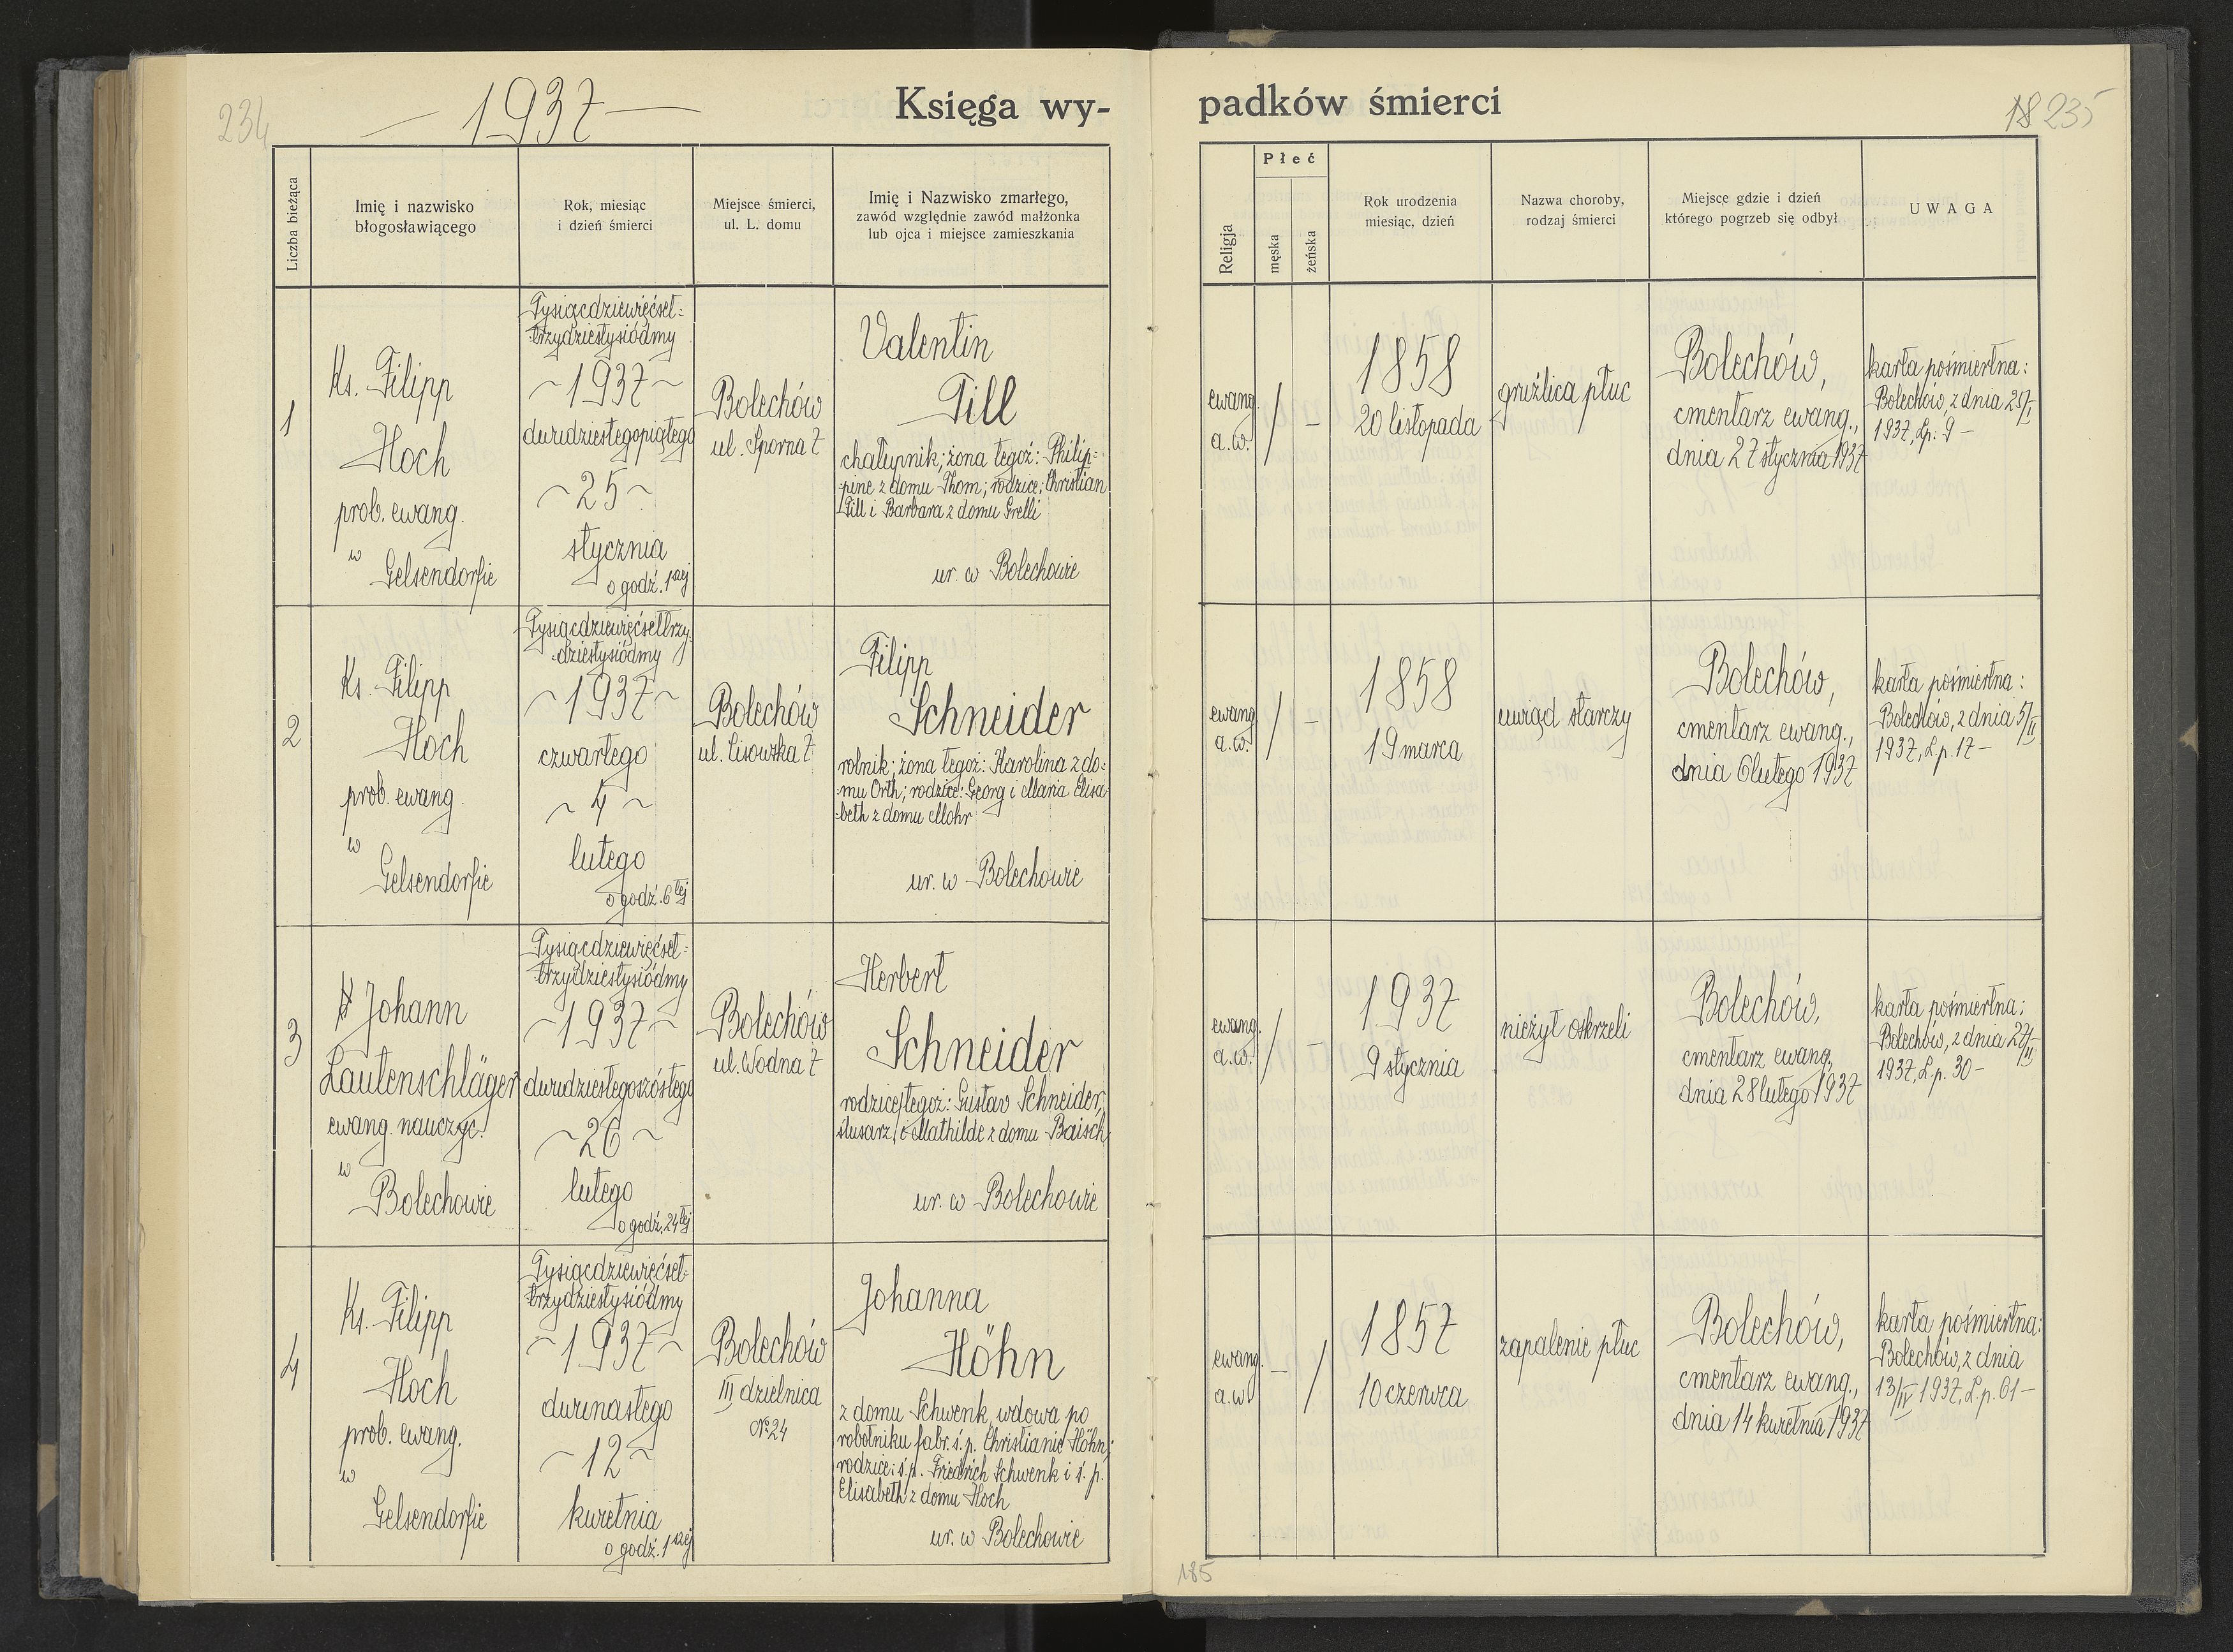 234
— 1937 —
Księga wy-
padków śmierci
18 235
Liczba bieżąca
Imię i nazwisko
błogosławiącego
Rok, miesiąc
i dzień śmierci
Miejsce śmierci,
ul. L. domu
Imię i Nazwisko zmarłego,
zawód względnie zawód małżonka
lub ojca i miejsce zamieszkania
Religja
Płeć
męska
żeńska
Rok urodzenia
miesiąc, dzień
Nazwa choroby,
rodzaj śmierci
Miejsce gdzie i dzień
którego pogrzeb się odbył
UWAGA
1
Ks. Filipp
Hoch
prob. ewang.
w
Gelsendorfie
Tysiącdziewięćset=
trzydziestysiódmy
~ 1937 ~
dwudziestegopiątego
~ 25 ~
stycznia
o godź. 1szej
Bolechów
ul. Sporna 7
Valentin
Till
chałupnik; żona tegoż: Philip=
pine z domu Thom; rodzice: Christian
Till i Barbara z domu Grelli
ur. w Bolechowie
ewang.
a.w.
/
–
1858
20 listopada
gruźlica płuc
Bolechów,
cmentarz ewang.,
dnia 27 stycznia 1937
karta pośmiertna:
Bolechów, z dnia 25/I
1937, Lp. 9 –
2
Ks. Filipp
Hoch
prob. ewang.
w
Gelsendorfie
Tysiącdziewięćsettrzy=
dziestysiódmy
~ 1937 ~
czwartego
~ 4 ~
lutego
o godź. 6tej
Bolechów
ul. Lisowska 7
Filipp
Schneider
rolnik; żona tegoż: Karolina z do=
mu Orth; rodzice: Georg i Maria Elisa=
beth z domu Mohr
ur. w Bolechowie
ewang.
a.w.
/
–
1858
19 marca
uwiąd starczy
Bolechów,
cmentarz ewang.,
dnia 6 lutego 1937
karta pośmiertna:
Bolechów, z dnia 5/II
1937, L.p. 17 –
3
Johann
Lautenschläger
ewang. naucżyc.
w
Bolechowie
Tysiącdziewięćset=
trzydziestysiódmy
~ 1937 ~
dwudziestegoszóstego
~ 26 ~
lutego
o godź. 24tej
Bolechów
ul. Wodna 7
Herbert
Schneider
rodzice tegoż: Gustav Schneider,
ślusarz, i Mathilde z domu Baisch
ur. w Bolechowie
ewang.
a.w.
/
–
1937
9 stycznia
nieżyt oskrzeli
Bolechów,
cmentarz ewang.
dnia 28 lutego 1937
karta pośmiertna:
Bolechów, z dnia 27/II
1937, L.p. 30 –
4
Ks. Filipp
Hoch
prob. ewang.
w
Gelsendorfie
Tysiącdziewięćset=
trzydziestysiódmy
~ 1937 ~
dwunastego
~ 12 ~
kwietnia
o godź. 1szej
Bolechów
III dzielnica
№ 24
Johanna
Höhn
z domu Schwenk, wdowa po
robotniku fabr. ś.p. Christianie Höhn;
rodzice: ś.p. Friedrich Schwenk i ś. p.
Elisabeth z domu Hoch
ur. w Bolechowie
ewang.
a.w.
–
/
1857
10 czerwca
zapalenie płuc
Bolechów,
cmentarz ewang.,
dnia 14 kwietnia 1937
karta pośmiertna:
Bolechów, z dnia
13/IV 1937, L.p. 61 –
185